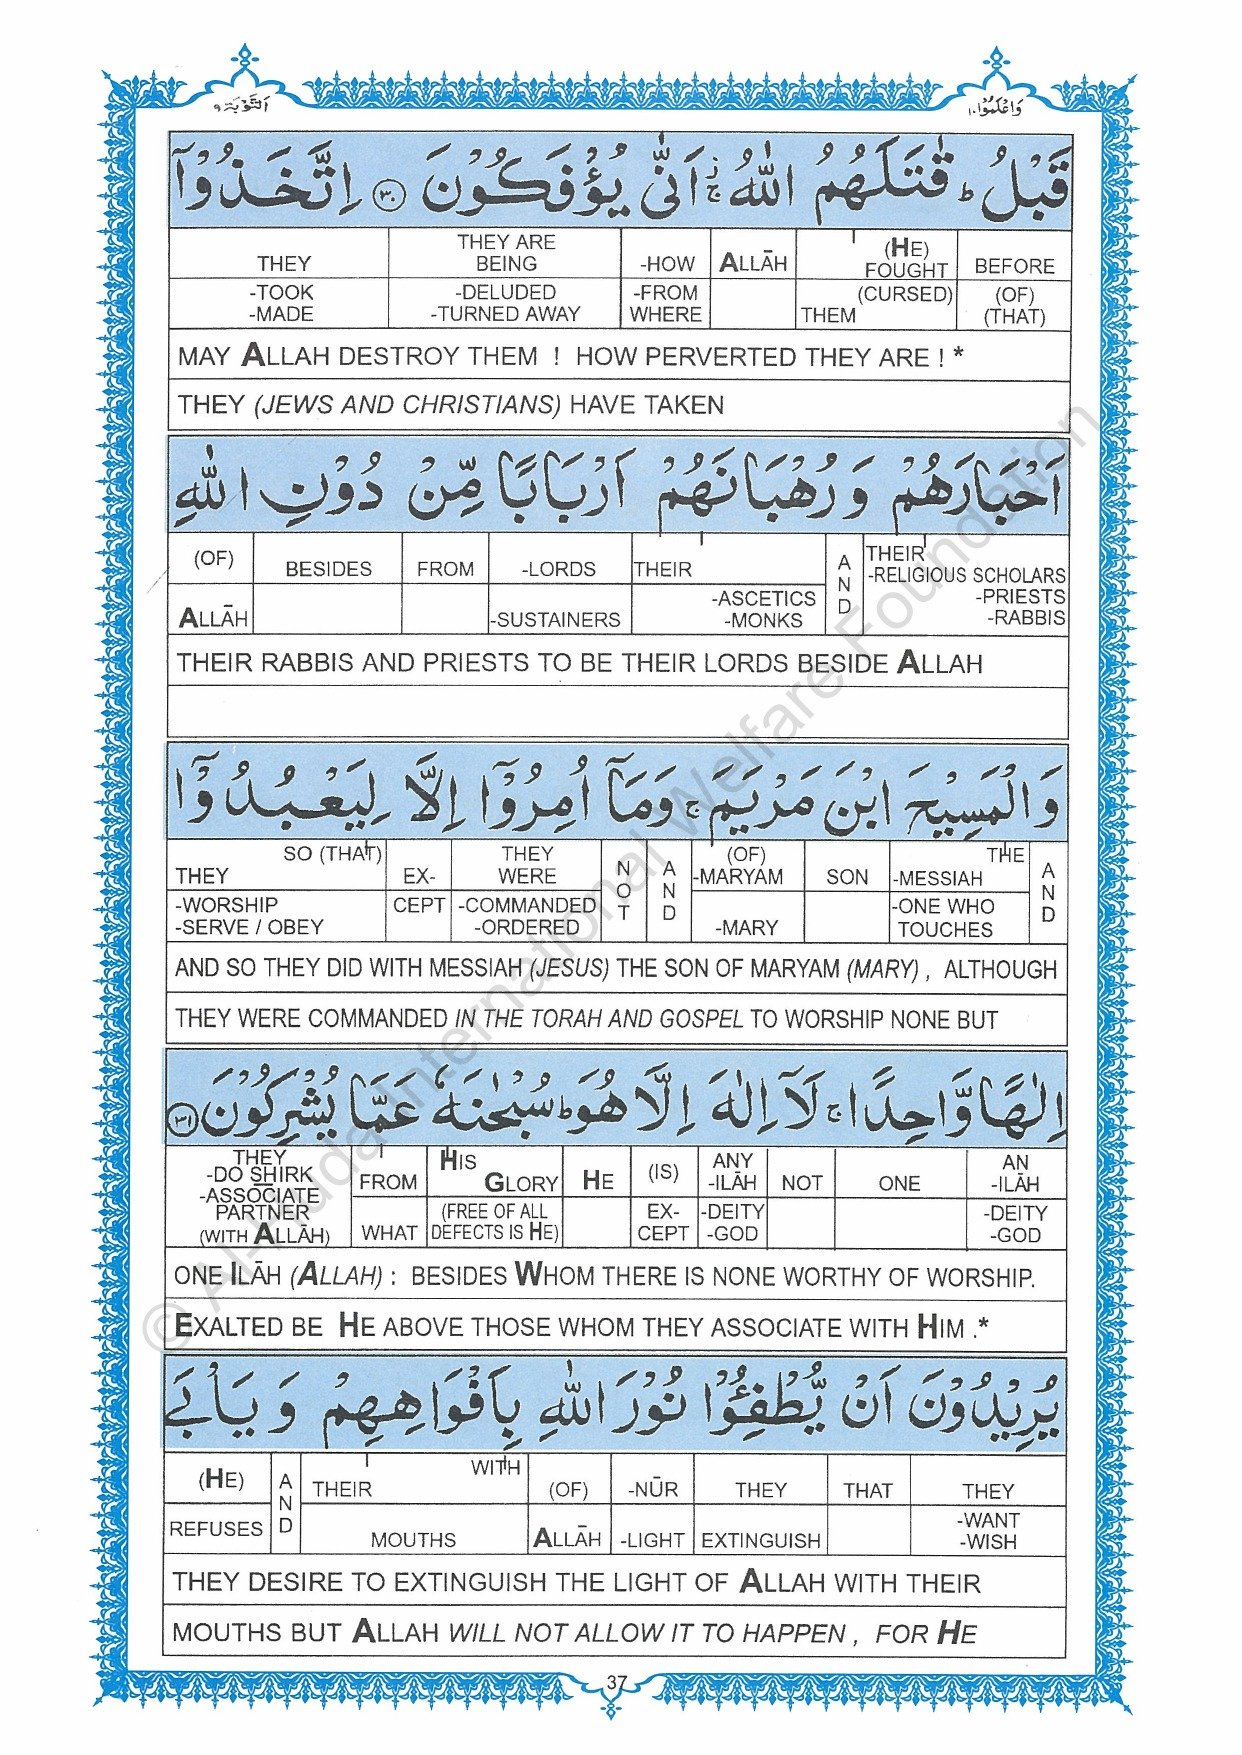 اَلتَّوْبَة ٩
وَاعْلَمُوْا ١٠
قَبْلُ ؕ قٰتَلَهُمُ اللّٰهُ ۚ اَنّٰى يُؤْفَكُوْنَ ﴿٣٠﴾ اِتَّخَذُوْۤا
THEY THEY ARE BEING -HOW ALLĀH (HE) FOUGHT BEFORE
-TOOK -MADE -DELUDED -TURNED AWAY -FROM WHERE THEM (CURSED) (OF) (THAT)
MAY ALLAH DESTROY THEM ! HOW PERVERTED THEY ARE ! *
THEY (JEWS AND CHRISTIANS) HAVE TAKEN
اَحْبَارَهُمْ وَرُهْبَانَهُمْ اَرْبَابًا مِّنْ دُوْنِ اللّٰهِ
(OF) BESIDES FROM -LORDS THEIR AND THEIR -RELIGIOUS SCHOLARS
ALLĀH -SUSTAINERS -ASCETICS -MONKS -PRIESTS -RABBIS
THEIR RABBIS AND PRIESTS TO BE THEIR LORDS BESIDE ALLAH
وَالْمَسِيْحَ ابْنَ مَرْيَمَ ۚ وَمَاۤ اُمِرُوْۤا اِلَّا لِيَعْبُدُوْۤا
THEY SO (THAT) EX- THEY WERE NOT AND (OF) -MARYAM SON THE -MESSIAH AND
-WORSHIP -SERVE / OBEY CEPT -COMMANDED -ORDERED -MARY -ONE WHO TOUCHES
AND SO THEY DID WITH MESSIAH (JESUS) THE SON OF MARYAM (MARY) , ALTHOUGH
THEY WERE COMMANDED IN THE TORAH AND GOSPEL TO WORSHIP NONE BUT
اِلٰهًا وَّاحِدًا ۚ لَاۤ اِلٰهَ اِلَّا هُوَ ؕ سُبْحٰنَهٗ عَمَّا يُشْرِكُوْنَ ﴿٣١﴾
THEY -DO SHIRK FROM HIS GLORY HE (IS) ANY -ILĀH NOT ONE AN -ILĀH
-ASSOCIATE PARTNER (WITH ALLĀH) WHAT (FREE OF ALL DEFECTS IS HE) EX- CEPT -DEITY -GOD -DEITY -GOD
ONE ILĀH (ALLAH) : BESIDES WHOM THERE IS NONE WORTHY OF WORSHIP.
EXALTED BE HE ABOVE THOSE WHOM THEY ASSOCIATE WITH HIM .*
يُرِيْدُوْنَ اَنْ يُّطْفِـُٔوْا نُوْرَ اللّٰهِ بِاَفْوَاهِهِمْ وَيَاْبَى
(HE) AND THEIR WITH (OF) -NŪR THEY THAT THEY
REFUSES MOUTHS ALLĀH -LIGHT EXTINGUISH -WANT -WISH
THEY DESIRE TO EXTINGUISH THE LIGHT OF ALLAH WITH THEIR
MOUTHS BUT ALLAH WILL NOT ALLOW IT TO HAPPEN , FOR HE
37
© Al-Huda International Welfare Foundation